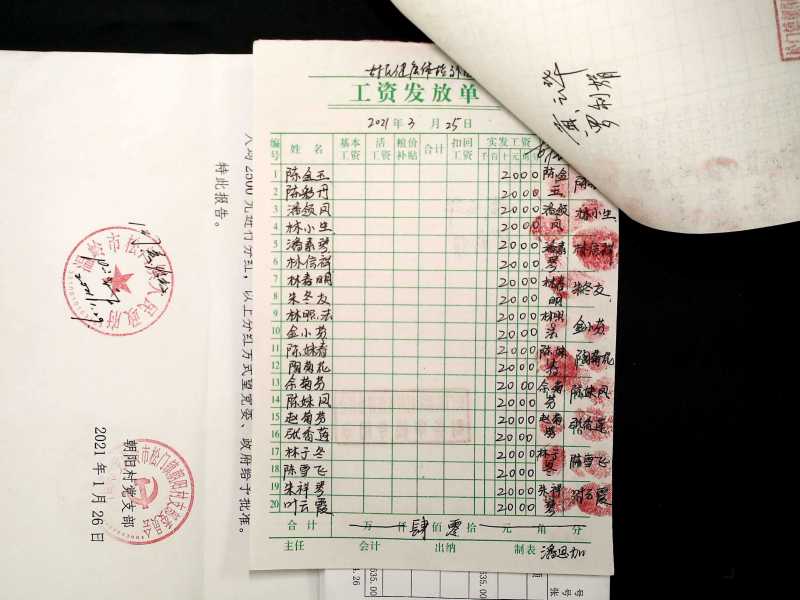 工资发放单
2021年3月25日
编号 姓名 基本工资 活工资 粮价补贴 合计 扣回工资 实发工资
千百十元角
1 陈金玉 2000 陈金玉
2 陈彩丹 2000
3 潘级凤 2000 潘级凤
4 林小生 2000 林小生
5 潘素琴 2000 潘素琴
6 林信裕 2000 林信裕
7 林春明 2000 林春明
8 朱冬友 2000 朱冬友
9 林照法 2000 林照法
10 金小芬 2000 金小芬
11 陈妹春 2000 陈妹春
12 陶菊花 2000 陶菊花
13 余菊芬 2000 余菊芬
14 陈妹凤 2000 陈妹凤
15 赵菊芬 2000 赵菊芬
16 张香莲 2000 张香莲
17 林于冬 2000 林于冬
18 陈雪飞 2000 陈雪飞
19 朱祥琴 2000 朱祥琴
20 叶云霞 2000 叶云霞
合计 万 仟肆佰零拾 元 角 分
主任 会计 出纳 制表
2500元进行分红，以上分红方式望党委、政府给予批准。
特此报告。
朝阳村党支部
2021年1月26日
635.00
635.00